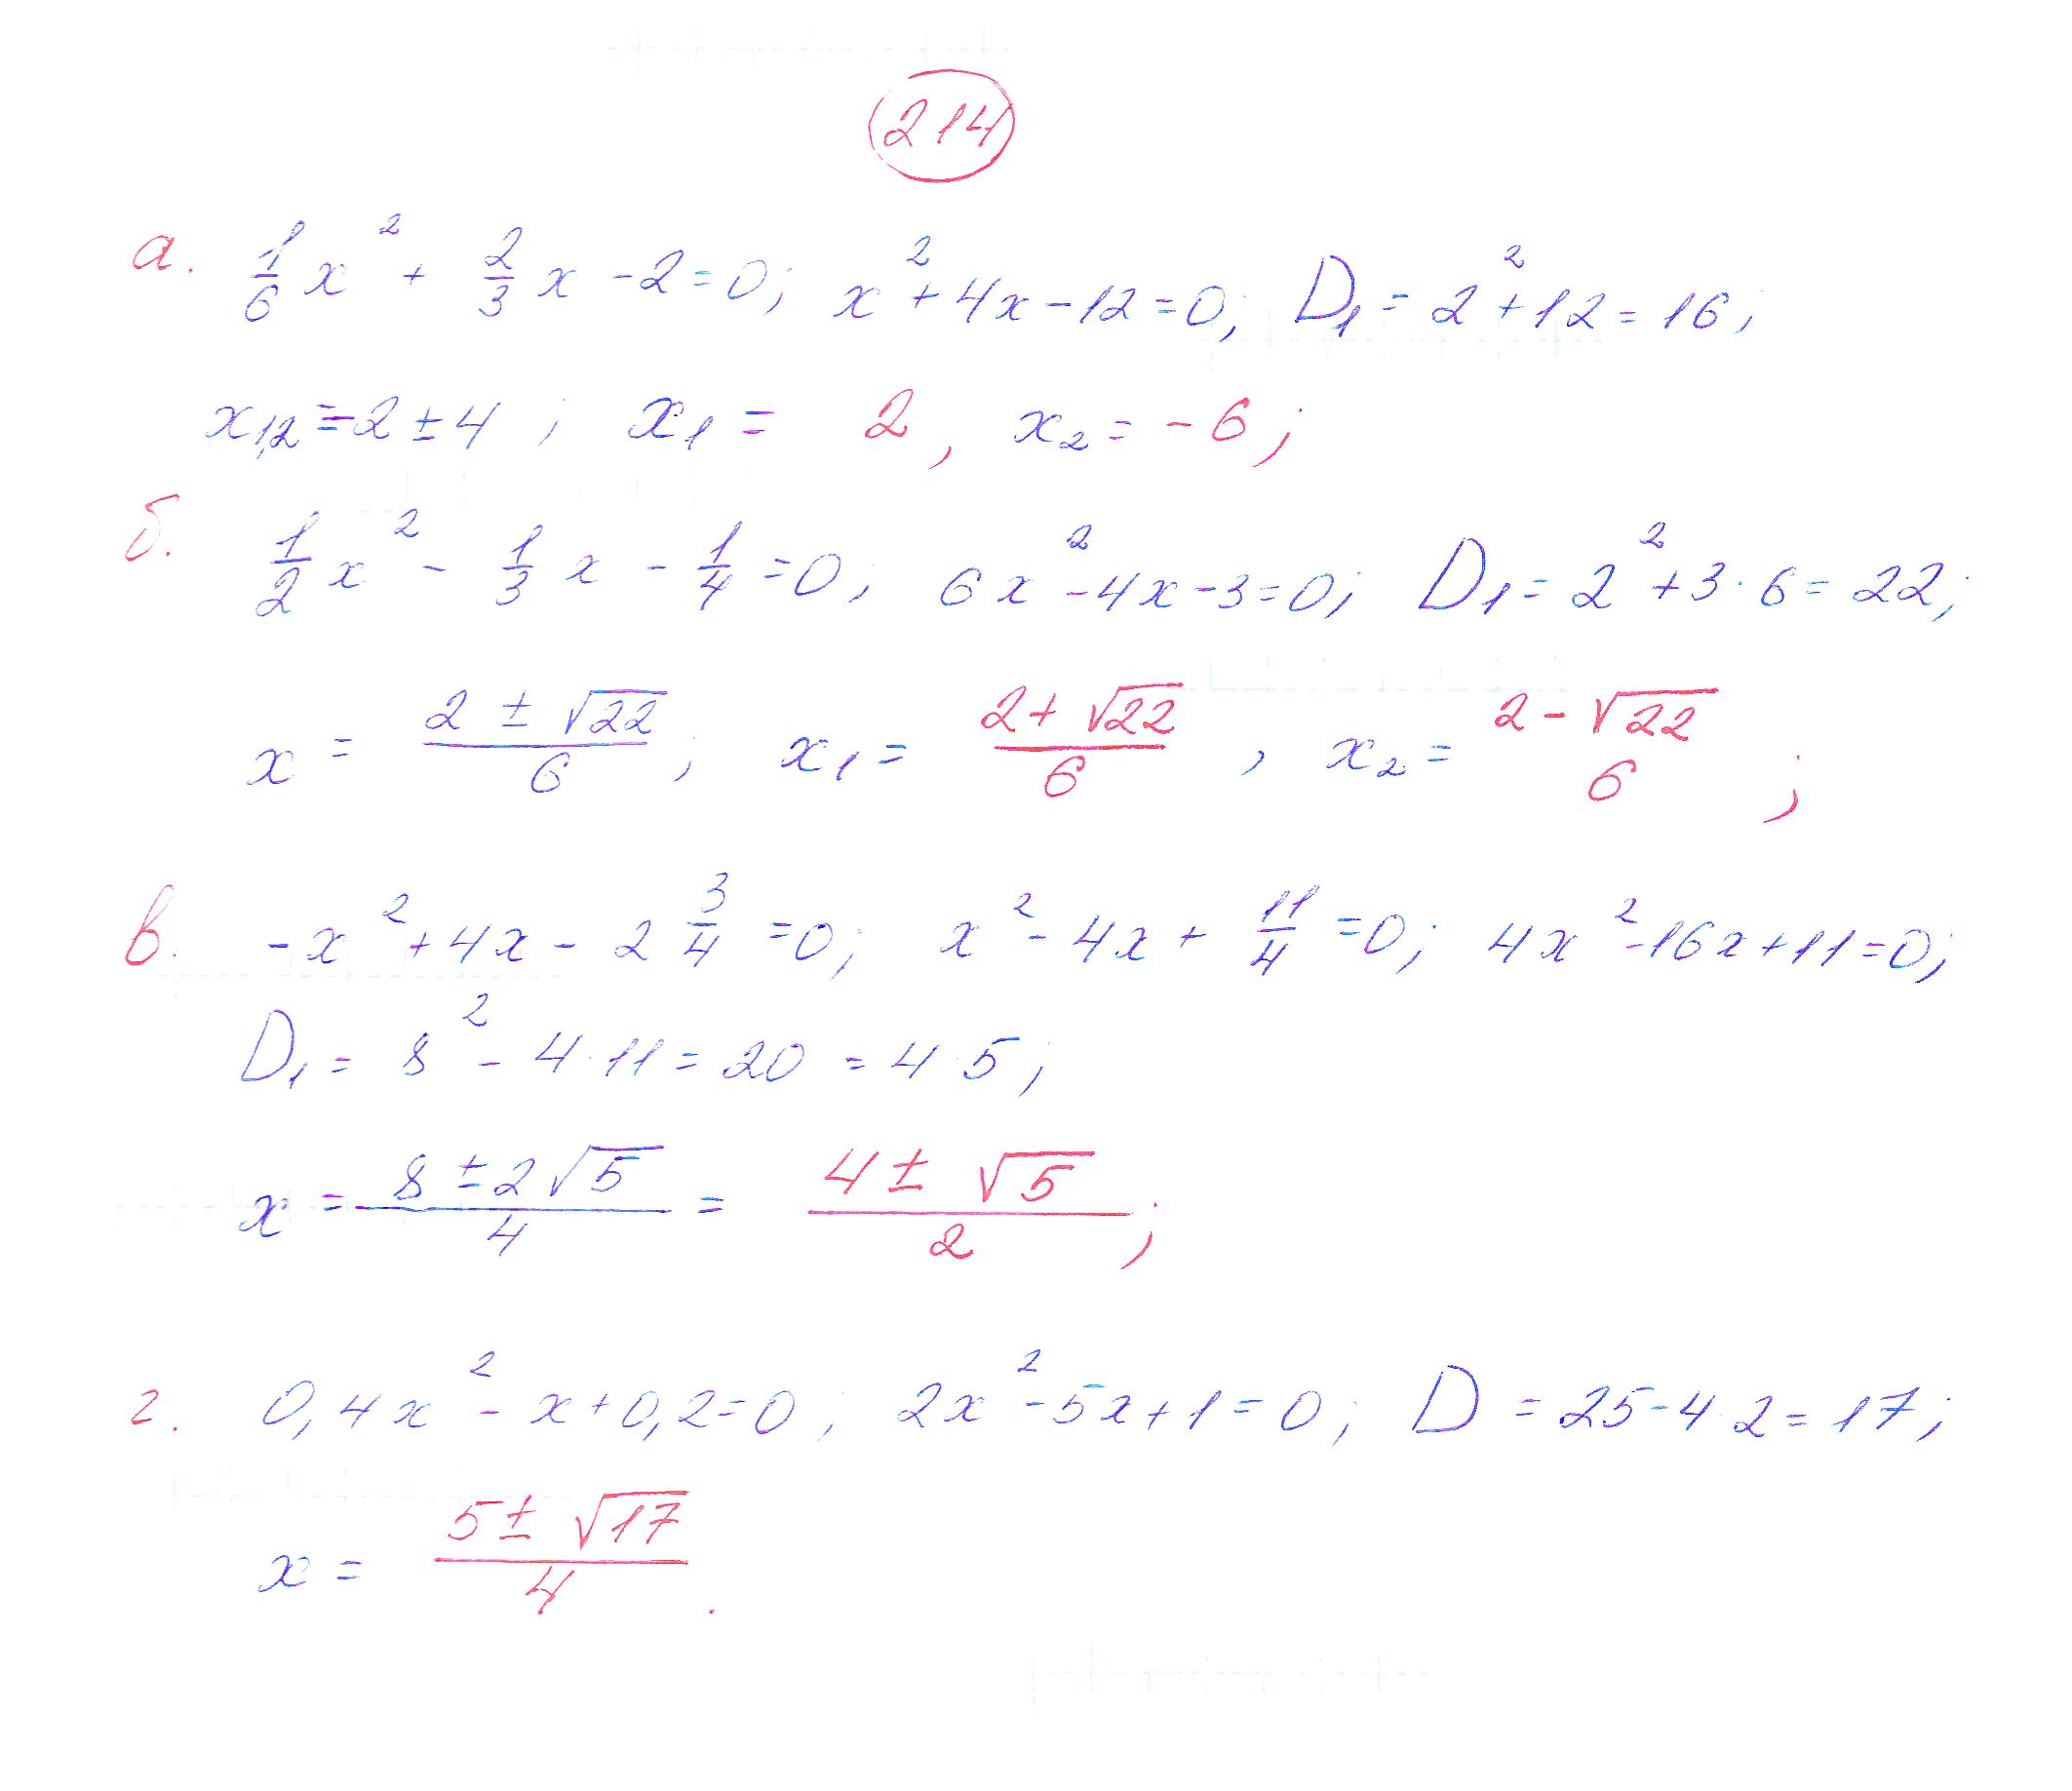 214
а. 1/6 x² + 2/3 x - 2 = 0; x² + 4x - 12 = 0; D₁ = 2² + 12 = 16;
x₁,₂ = -2 ± 4; x₁ = 2, x₂ = -6;
б. 1/2 x² - 1/3 x - 1/4 = 0; 6x² - 4x - 3 = 0; D₁ = 2² + 3·6 = 22;
x = (2 ± √22)/6; x₁ = (2 + √22)/6, x₂ = (2 - √22)/6;
в. -x² + 4x - 2 3/4 = 0; x² - 4x + 11/4 = 0; 4x² - 16x + 11 = 0;
D₁ = 8² - 4·11 = 20 = 4·5;
x = (8 ± 2√5)/4 = (4 ± √5)/2;
г. 0,4x² - x + 0,2 = 0; 2x² - 5x + 1 = 0; D = 25 - 4·2 = 17;
x = (5 ± √17)/4.